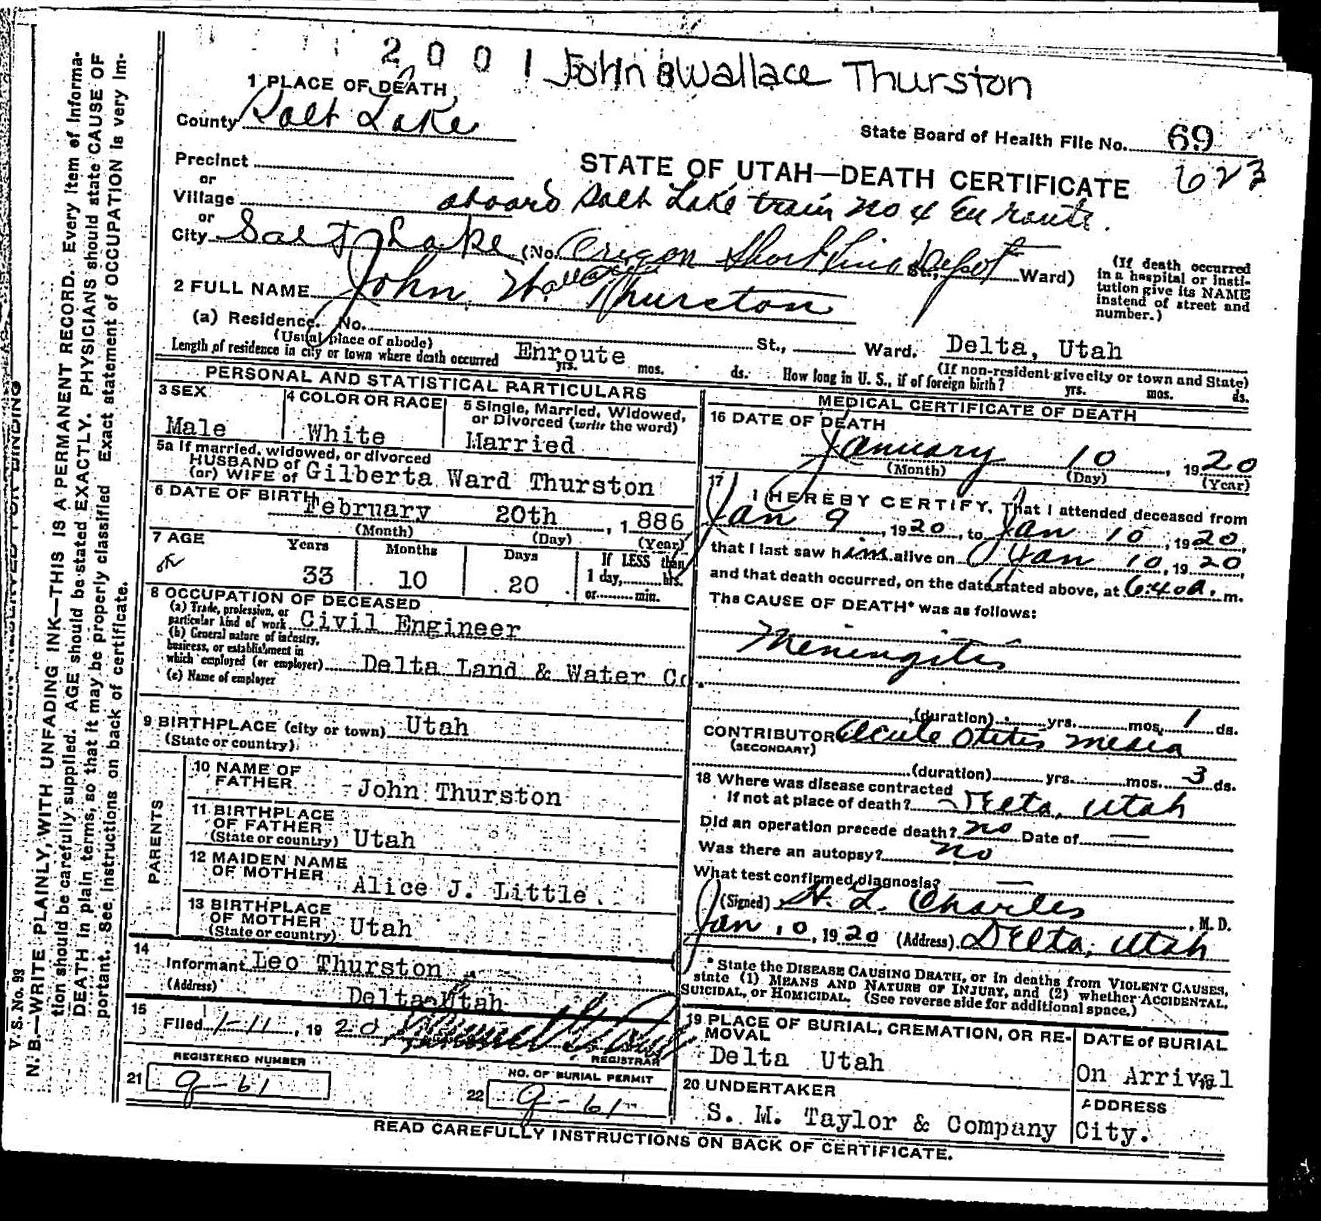 2001 John Wallace Thurston
1 PLACE OF DEATH
County Salt Lake
State Board of Health File No. 69
623
Precinct
or
Village
STATE OF UTAH—DEATH CERTIFICATE
aboard Salt Lake train no 4 En route.
or
City Salt Lake (No. Oregon Short Line Depot St., Ward)
(If death occurred in a hospital or insti-
tution give its NAME
instead of street and
number.)
2 FULL NAME John Wallace Thurston
(a) Residence. No. St., Ward. Delta, Utah
(Usual place of abode) (If non-resident give city or town and State)
Length of residence in city or town where death occurred Enroute yrs. mos. ds. How long in U. S., if of foreign birth? yrs. mos. ds.
PERSONAL AND STATISTICAL PARTICULARS
3 SEX
Male
4 COLOR OR RACE
White
5 Single, Married, Widowed,
or Divorced (write the word)
Married
5a If married, widowed, or divorced
HUSBAND of
(or) WIFE of Gilberta Ward Thurston
6 DATE OF BIRTH
February 20th, 1886
(Month) (Day) (Year)
7 AGE
Years Months Days
33 10 20
If LESS than
1 day, hrs.
or min.
8 OCCUPATION OF DECEASED
(a) Trade, profession, or
particular kind of work Civil Engineer
(b) General nature of industry,
business, or establishment in
which employed (or employer) Delta Land & Water Co.
(c) Name of employer
9 BIRTHPLACE (city or town) Utah
(State or country)
PARENTS
10 NAME OF
FATHER John Thurston
11 BIRTHPLACE
OF FATHER
(State or country) Utah
12 MAIDEN NAME
OF MOTHER Alice J. Little
13 BIRTHPLACE
OF MOTHER
(State or country) Utah
14
Informant Leo Thurston
(Address) Delta Utah
15
Filed 1-11, 1920
REGISTRAR
REGISTERED NUMBER
21 9-61
NO. OF BURIAL PERMIT
22 9-61
MEDICAL CERTIFICATE OF DEATH
16 DATE OF DEATH
January 10, 1920
(Month) (Day) (Year)
17 I HEREBY CERTIFY, That I attended deceased from
Jan 9, 1920, to Jan 10, 1920,
that I last saw him alive on Jan 10, 1920,
and that death occurred, on the date stated above, at 6:40a. m.
The CAUSE OF DEATH* was as follows:
Meningitis
(duration) yrs. mos. 1 ds.
CONTRIBUTORY Acute Otitis media
(SECONDARY)
(duration) yrs. mos. 3 ds.
18 Where was disease contracted
If not at place of death? Delta, Utah
Did an operation precede death? no Date of —
Was there an autopsy? no
What test confirmed diagnosis? —
(Signed) H. L. Charles, M. D.
Jan 10, 1920 (Address) Delta, Utah
* State the DISEASE CAUSING DEATH, or in deaths from VIOLENT CAUSES,
state (1) MEANS AND NATURE OF INJURY, and (2) whether ACCIDENTAL,
SUICIDAL, or HOMICIDAL. (See reverse side for additional space.)
19 PLACE OF BURIAL, CREMATION, OR RE-
MOVAL
Delta Utah
DATE of BURIAL
On Arrival 19
20 UNDERTAKER
S. M. Taylor & Company
ADDRESS
City.
READ CAREFULLY INSTRUCTIONS ON BACK OF CERTIFICATE.
V. S. No. 93
MARGIN RESERVED FOR BINDING
N. B.—WRITE PLAINLY, WITH UNFADING INK—THIS IS A PERMANENT RECORD. Every item of informa-
tion should be carefully supplied. AGE should be stated EXACTLY. PHYSICIANS should state CAUSE OF
DEATH in plain terms, so that it may be properly classified. Exact statement of OCCUPATION is very im-
portant. See instructions on back of certificate.